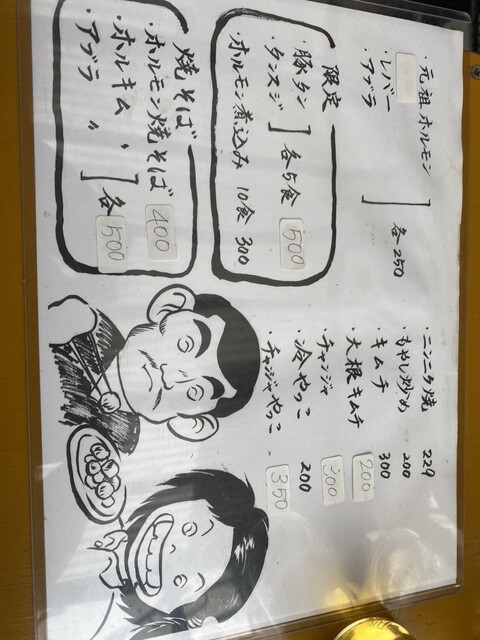 ・元祖ホルモン
・レバー
・アブラ
各250
限定
・豚タン
・タンスジ
各5食 500
・ホルモン煮込み 10食 300
焼そば
・ホルモン焼そば 400
・ホルキム 〃
・アブラ 〃
各500
・ニンニク焼
・もやし炒め 200
・キムチ 300
・大根キムチ 200
・チャンジャ 300
・冷やっこ 200
・チャンジャやっこ 350